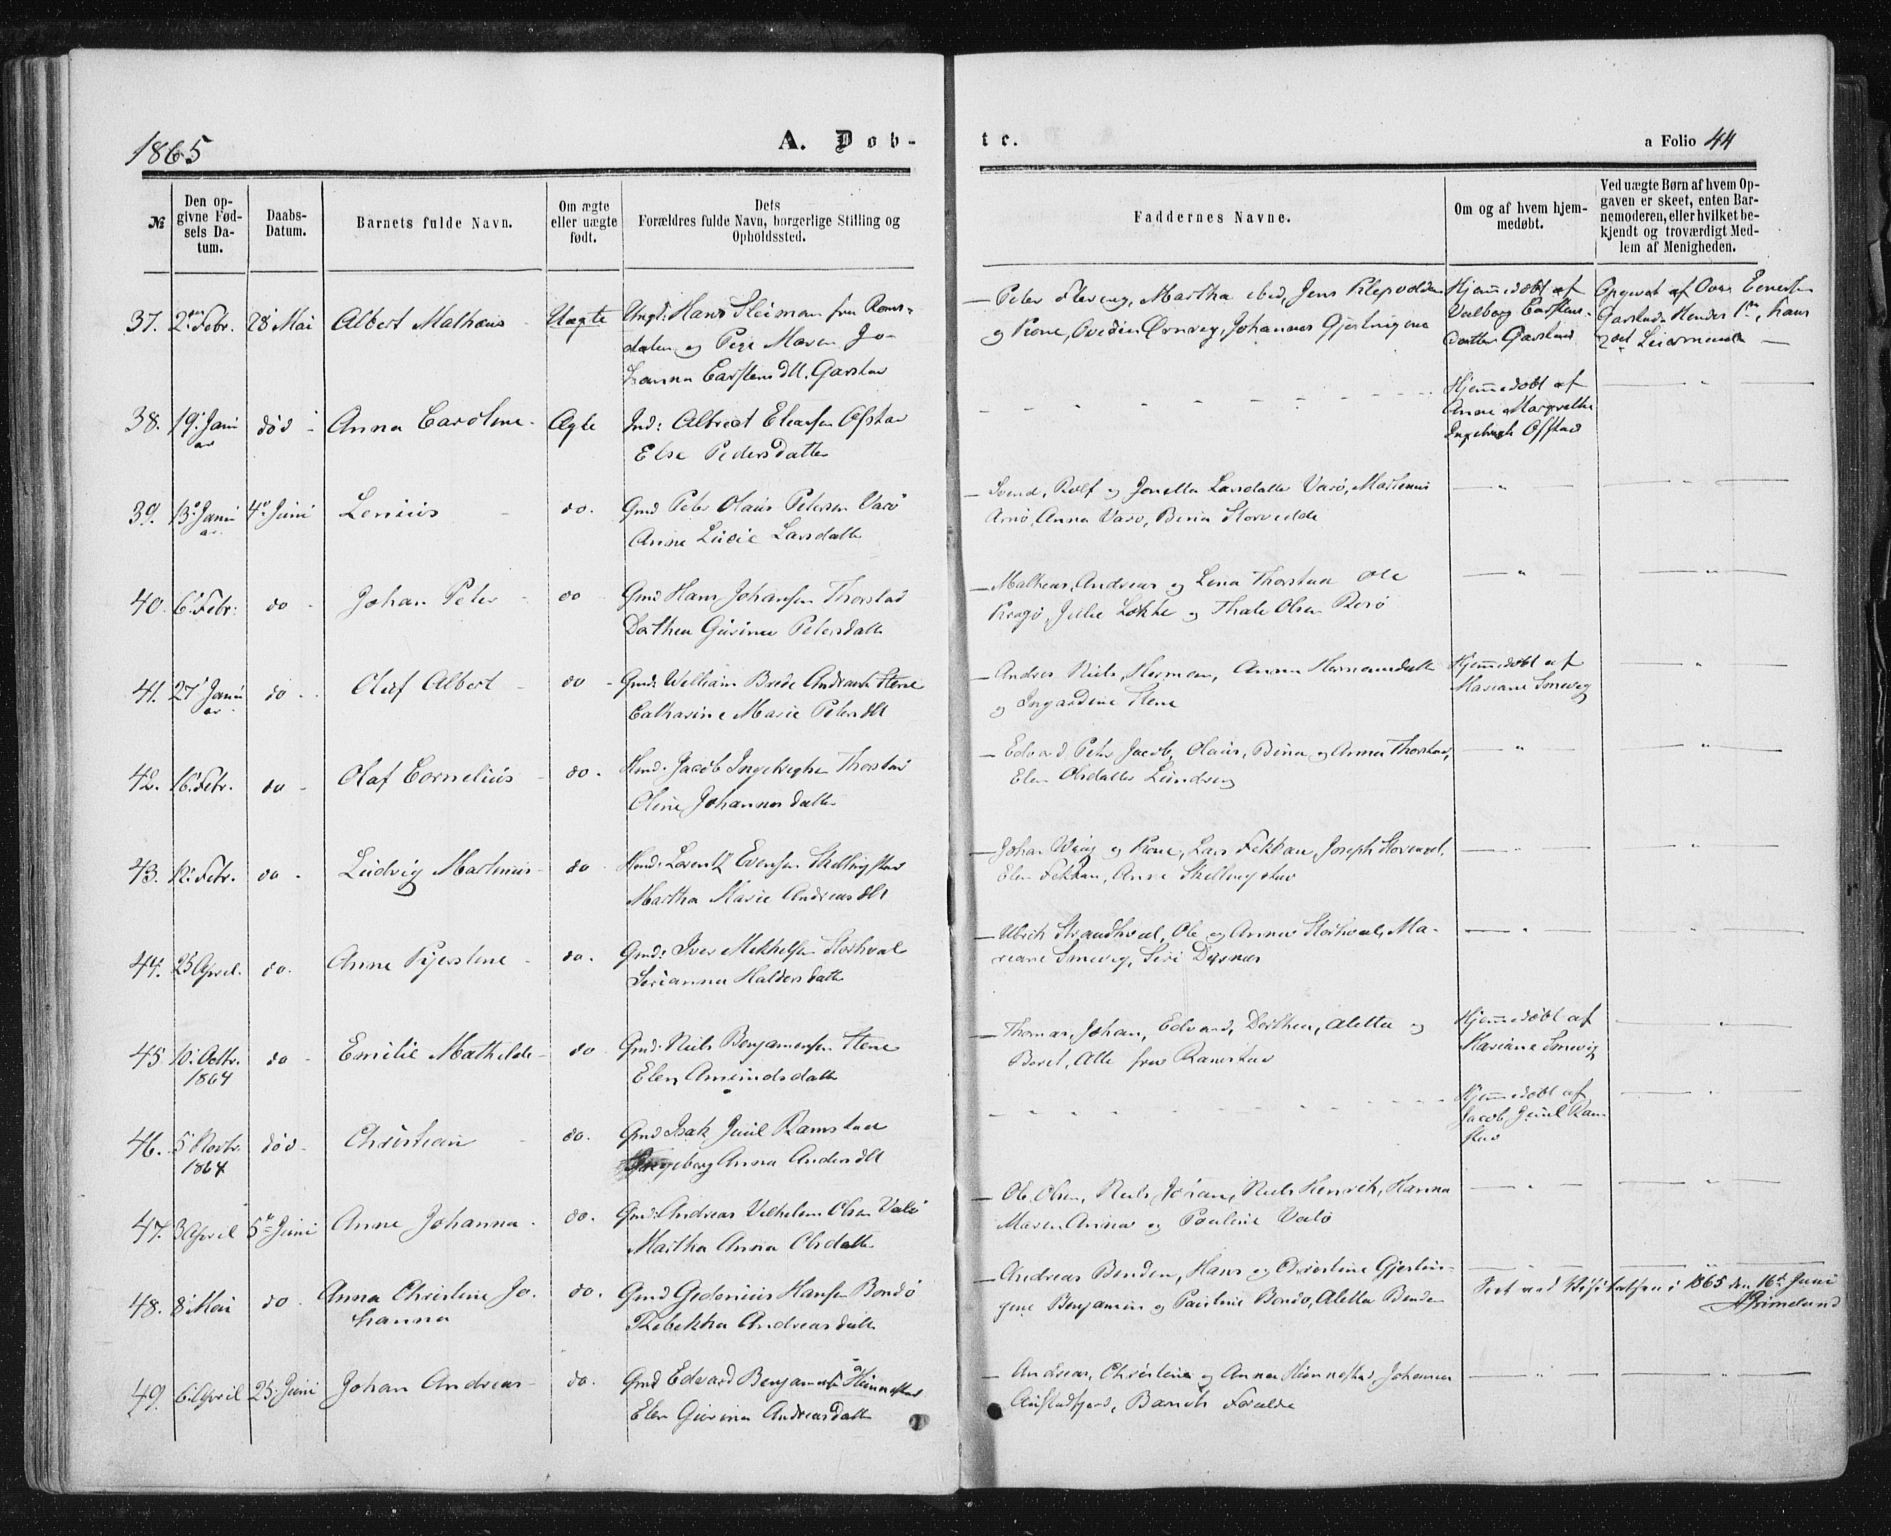 1865
A. Døb-
te.
a Folio 44
№
Den op-
givne Fød-
sels Da-
tum.
Daabs-
Datum.
Barnets fulde Navn.
Om ægte
eller uægte
født.
Dets
Forældres fulde Navn, borgerlige Stilling og
Opholdssted.
Faddernes Navne.
Om og af hvem hjem-
medøbt.
Ved uægte Børn af hvem Op-
gaven er skeet, enten Bar-
nemoderen, eller hvilket be-
kjendt og troværdigt Med-
lem af Menigheden.
37. 2den Febr. 28 Mai Albert Mathæus Uægte Ungk: Hans Steiman fra Roms-
dalen og Pige Maren Jo-
hanna Carstensdtt. Garstad
Peter, Martha ibid, Jens
og Kone, Johannes Gjertingene
Hjemmedøbt af
Valborg Carstens-
datter Garstad
Opgivet af
Garstad
38. 19 Janu
ar død Anna Caroline Ægte Ind: Albrect Ofstad
Else Pedersdatter
Hjemmedøbt af
Anne Margrethe
Ofstad
39. 13 Janu
ar 4de Juni Lenius do. Gmd Peter Olaus Petersen Varø
Anne Lucie Larsdatter
Svend, Rolf og Jonetta Larsdatter Varø, Martinus
Arnø, Anna Varø, Beria
40. 6 Febr. do Johan Peter do Gmd Hans Johansen Thorstad
Dorthea Gurina Petersdatter
Matheus, Andreas og Lena Thorstad Ole
Julie Løkke og Thale Olsen
41. 27 Janu
ar do Oluf Albert do Gmd: William Brede Andreas Stene
Catharine Marie Petersdtt
Andreas, Niels, Herman, Anna Hermansdatter
og Stene
Hjemmedøbt af
Mariane Smevig
42. 16 Febr. do Olaf Cornelius do. Hmd: Jacob Thorstad
Oline Johannesdatter
Edvard, Peter, Jacob, Olaus, Beria og Anna Thorstad,
Elen Olsdatter Lundvey
43. 12 Febr. do Ludvig Martinus do Hmd: Lorentz Evensen Skillingstad
Martha Marie Andreasdtt
Johan og Kone, Lars Fekkan, Joseph
Elen Fekkan, Anne Skillingstad
44. 25 April do. Anne Kjerstine do. Gmd: Iver Mikkelsen Storhval
Serianna Haldorsdatter
Ulrich Strandhval, Ole og Anna Storhval, Ma-
riane Smevig, Siri
45 10 Octbr.
1864 do Emilie Mathilde do Gmd: Niels Benjaminsen Stene
Elen Amundsdatter
Thomas, Johan, Edvard, Dorthea, Aletta og
Beret, Alle fra Ramstad
Hjemmedøbt af
Mariane Smevig
46. 5 Novbr.
1864 død Christian do. Gmd Isak Juul Ramstad
Ingeborg Anna Andersdtt
Hjemmedøbt af
Jacob Juul Ram-
stad
47. 3 April 5te Juni Anne Johanna do. Gmd: Andreas Vilhelm Olsen Valø
Martha Anna Olsdatter
Ole Olsen, Niels Johan, Niels Henrik, Hanna
Maren Anna og Pauline Valø
48. 8 Mai do. Anna Christine Jo-
hanna do. Gmd Gedonius Hansen Bondø
Rebekka Andreasdatter
Andreas Benden, Hans og Christine Gjertin-
gene Benjamin og Pauline Bondø, Aletta Benden
Seet ved Visitatsen i 1865 den 16de Juni
A Grimelund
49. 6 April 25 Juni Johan Andreas do. Gmd Edvard Benjaminsen Heimnestad
Elen Gurina Andreasdatter
Andreas, Christine og Anna Heimnestad, Johannes
Barnets Forældre